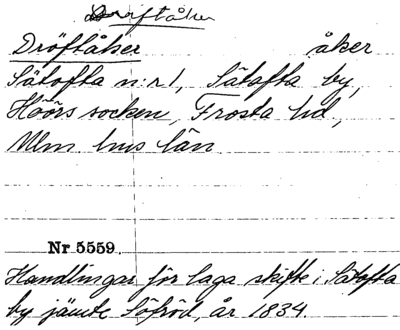 Dröftåker
Dröftåker åker
Sätofta n:r 1, Sätofta by,
Höörs socken, Frosta hd,
Mlm hus län
Nr 5559
Handlingar för laga skifte i Sätofta
by jämte Söfröd, år 1834.